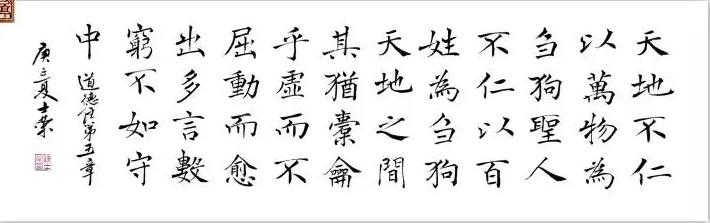 天地不仁
以萬物為
刍狗聖人
不仁以百
姓為刍狗
天地之間
其猶橐龠
乎虛而不
屈動而愈
出多言數
窮不如守
中 道德经第五章
庚子夏士荣